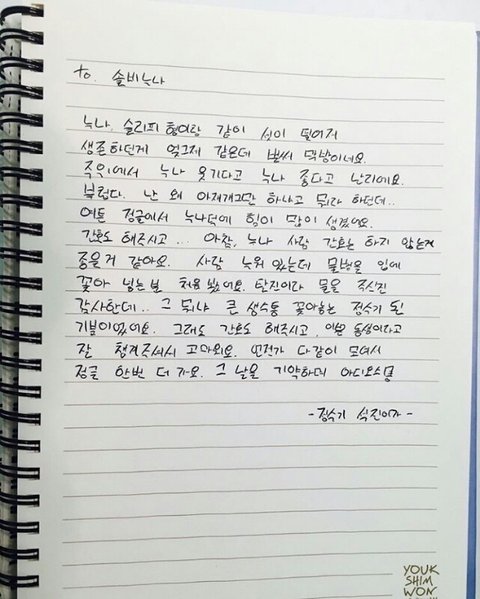 to. 솔비누나
누나, 슬리피 형이랑 같이 섬에 떨어져
생존하던게 엊그제 같은데 벌써 막방이네요.
주위에서 누나 웃기다고 누나 좋다고 난리에요.
부럽다. 난 왜 아재개그만 하냐고 뭐라 하던데..
여튼 정글에서 누나덕에 힘이 많이 생겼어요.
간호도 해주시고... 아참, 누나 사람 간호는 하지 않는게
좋을거 같아요. 사람 누워있는데 물병을 입에
꽂아 넣는 분 처음 봤어요. 탄진이라 물을 주신건
감사한데.. 그 뭐냐 큰 생수통 꽂아놓는 정수기 된
기분이었어요. 그래도 간호도 해주시고, 이쁜 동생이라고
잘 챙겨주셔서 고마워요. 언젠가 다같이 모여서
정글 한번 더 가요. 그 날을 기약하며 아디오스
- 정수기 석진이가 -
YOUK
SHIM
WON